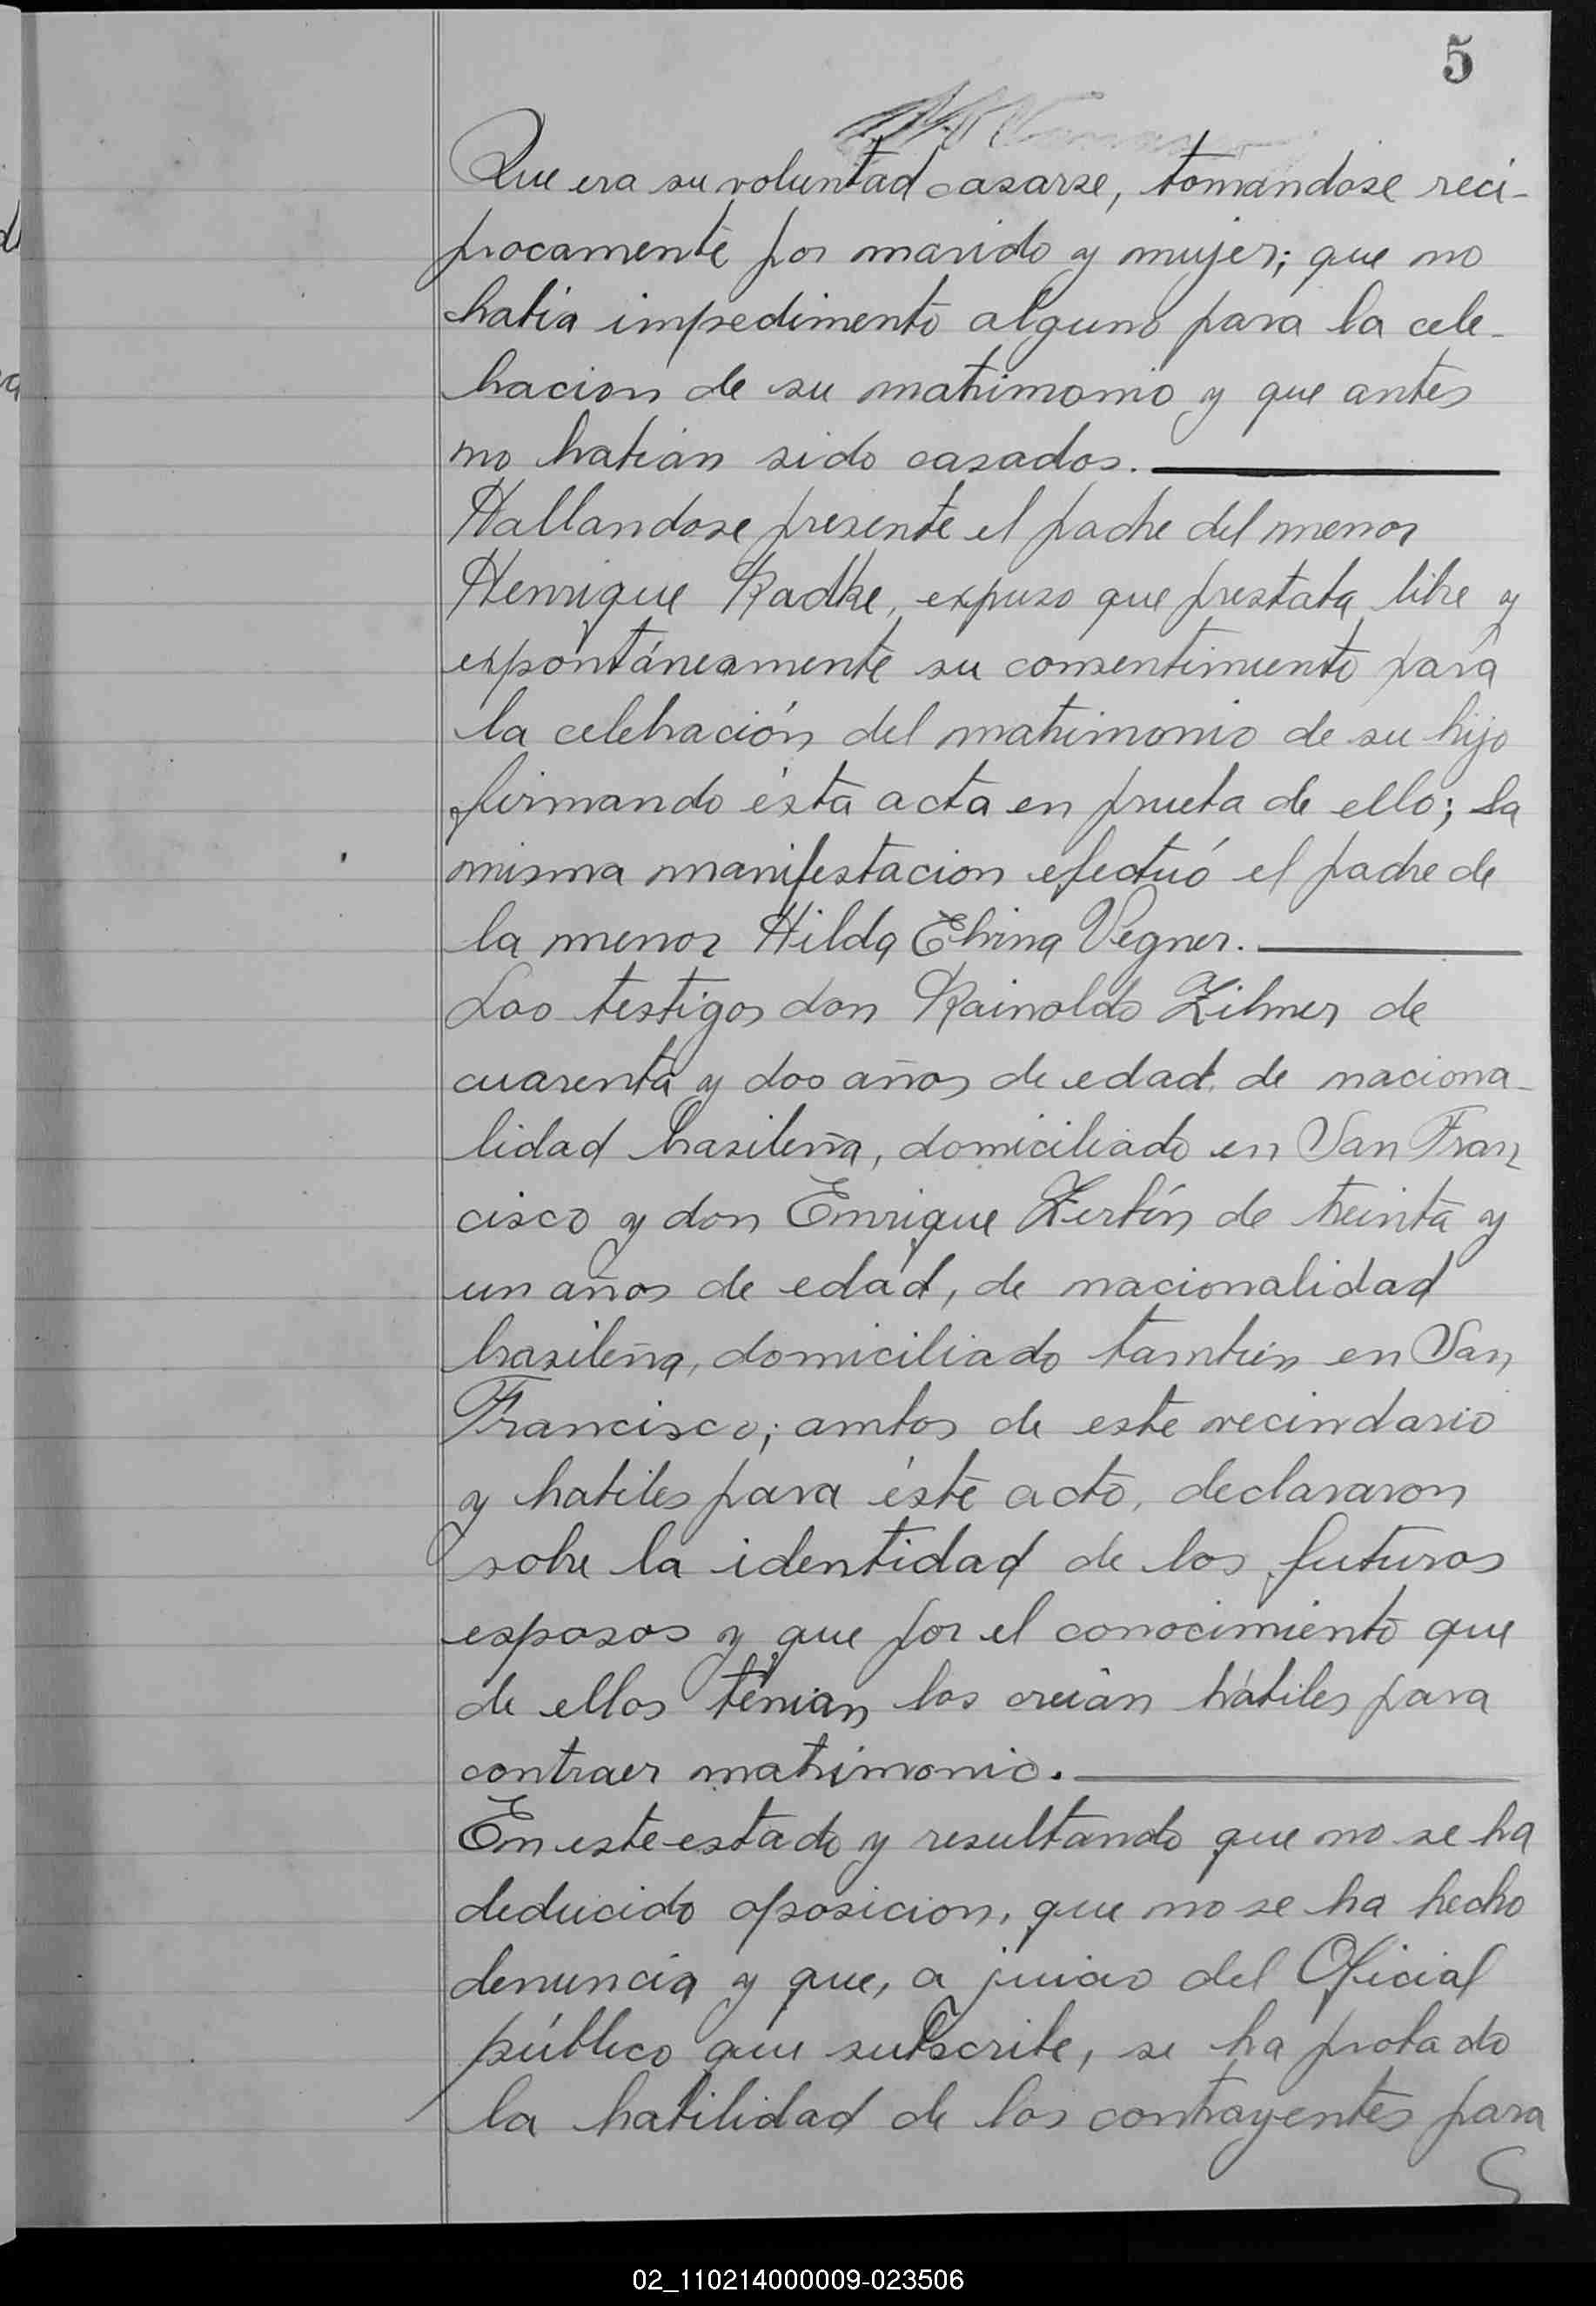 5
Que era su voluntad casarse, tomandose reci-
procamente por marido y mujer; que no
habia impedimento alguno para la cele-
bracion de su matrimonio y que antes
no habian sido casados.
Hallandose presente el padre del menor
Henrique Radke, expuso que prestaba libre y
expontáneamente su consentimiento para
la celebración del matrimonio de su hijo
firmando ésta acta en prueba de ello; la
misma manifestacion efectuó el padre de
la menor Hilda Elvina Vegner.
Los testigos don Rainoldo Zilmer de
cuarenta y dos años de edad, de naciona-
lidad brasileña, domiciliado en San Fran
cisco y don Enrique Zerbín de treinta y
un años de edad, de nacionalidad
brasileña, domiciliado tambien en San
Francisco; ambos de este vecindario
y habiles para éste acto, declararon
sobre la identidad de los futuros
esposos y que por el conocimiento que
de ellos tenian los creian hábiles para
contraer matrimonio.
En este estado y resultando que no se ha
deducido oposicion, que no se ha hecho
denuncia y que, a juicio del Oficial
público que subscribe, se ha probado
la habilidad de los contrayentes para
02_110214000009-023506